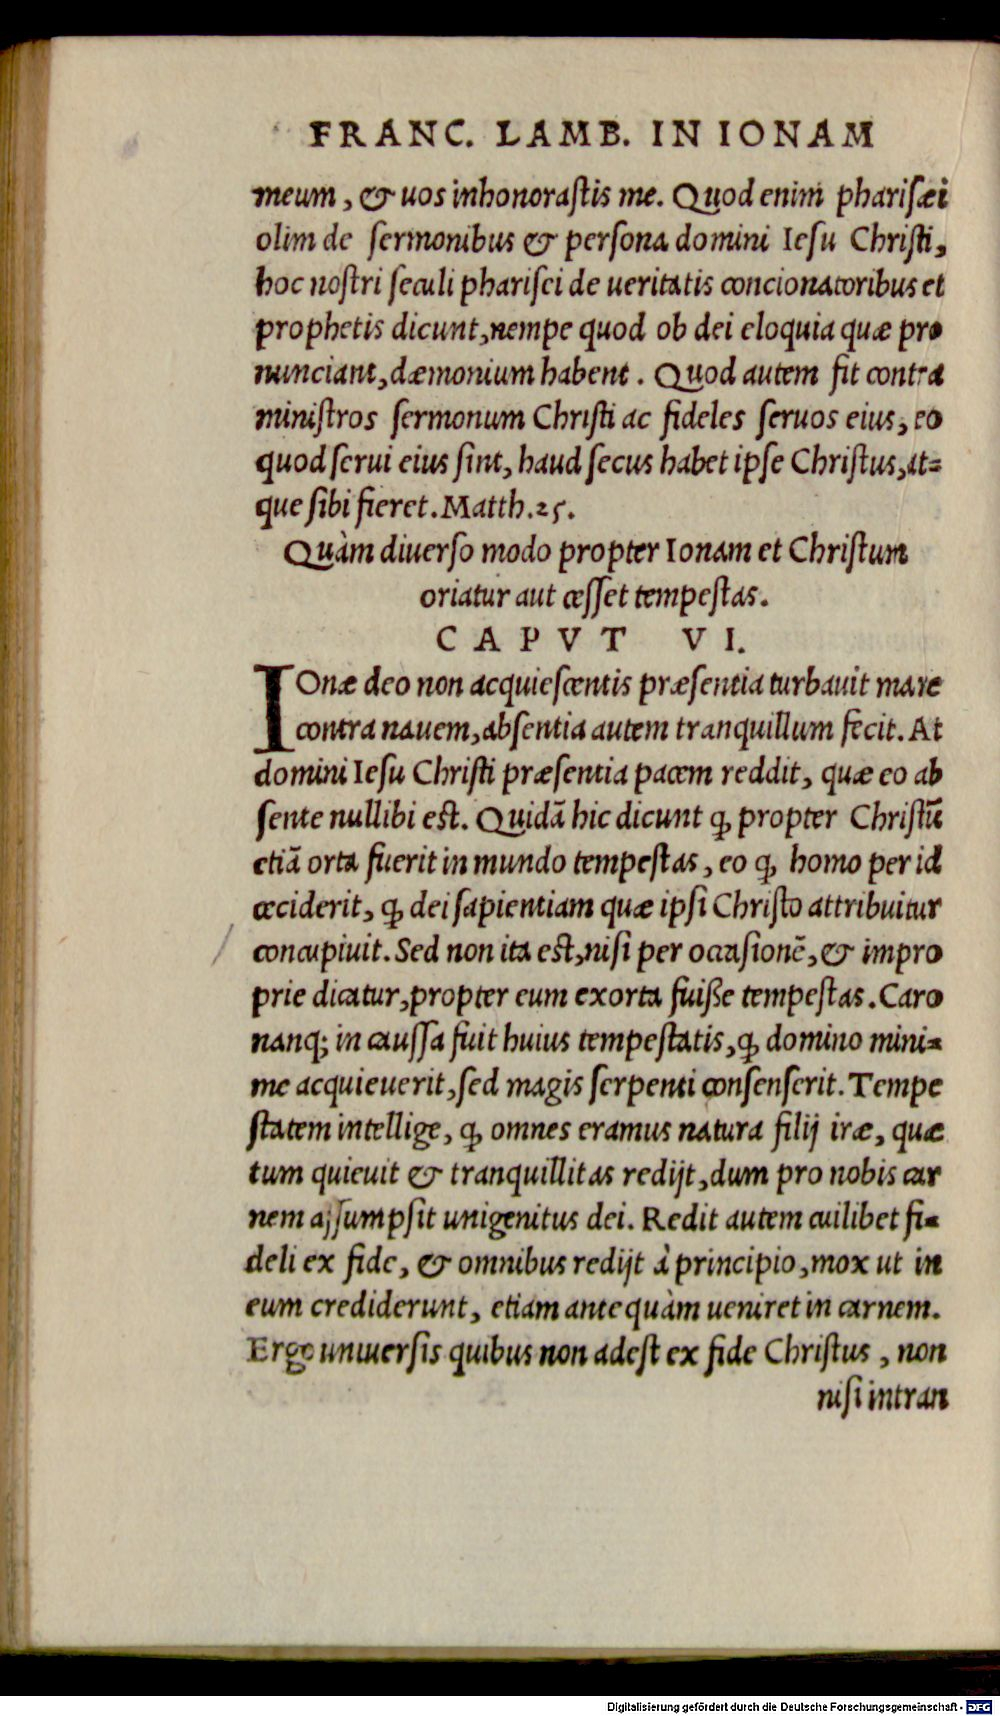 FRANC. LAMB. IN IONAM
meum, & uos inhonoraſtis me. Quod enim phariſæi
olim de ſermonibus & perſona domini Ieſu Chriſti,
hoc noſtri ſeculi phariſei de ueritatis concionatoribus et
prophetis dicunt, nempe quod ob dei eloquia quæ pro
nunciant, dæmonium habent. Quod autem fit contra
miniſtros ſermonum Chriſti ac fideles ſeruos eius, eo
quod ſerui eius ſint, haud ſecus habet ipſe Chriſtus, at=
que ſibi fieret. Matth. 25.
Quàm diuerſo modo propter Ionam et Chriſtum
oriatur aut ceſſet tempeſtas.
CAPVT VI.
IOnæ deo non acquieſcentis præſentia turbauit mare
contra nauem, abſentia autem tranquillum fecit. At
domini Ieſu Chriſti præſentia pacem reddit, quæ eo ab
ſente nullibi eſt. Quidã hic dicunt ꝙ propter Chriſtũ
etiã orta fuerit in mundo tempeſtas, eo ꝙ homo per id
ceciderit, ꝙ dei ſapientiam quæ ipſi Chriſto attribuitur
concupiuit. Sed non ita eſt, niſi per occaſionẽ, & impro
prie dicatur, propter eum exorta fuiße tempeſtas. Caro
nanq; in cauſſa fuit huius tempeſtatis, ꝙ domino mini=
me acquieuerit, ſed magis ſerpenti conſenſerit. Tempe
ſtatem intellige, ꝙ omnes eramus natura filij iræ, quæ
tum quieuit & tranquillitas redijt, dum pro nobis car
nem aſſumpſit unigenitus dei. Redit autem cuilibet fi=
deli ex fide, & omnibus redijt à principio, mox ut in
eum crediderunt, etiam ante quàm ueniret in carnem.
Ergo uniuerſis quibus non adeſt ex fide Chriſtus, non
niſi intran
Digitalisierung gefördert durch die Deutsche Forschungsgemeinschaft - DFG